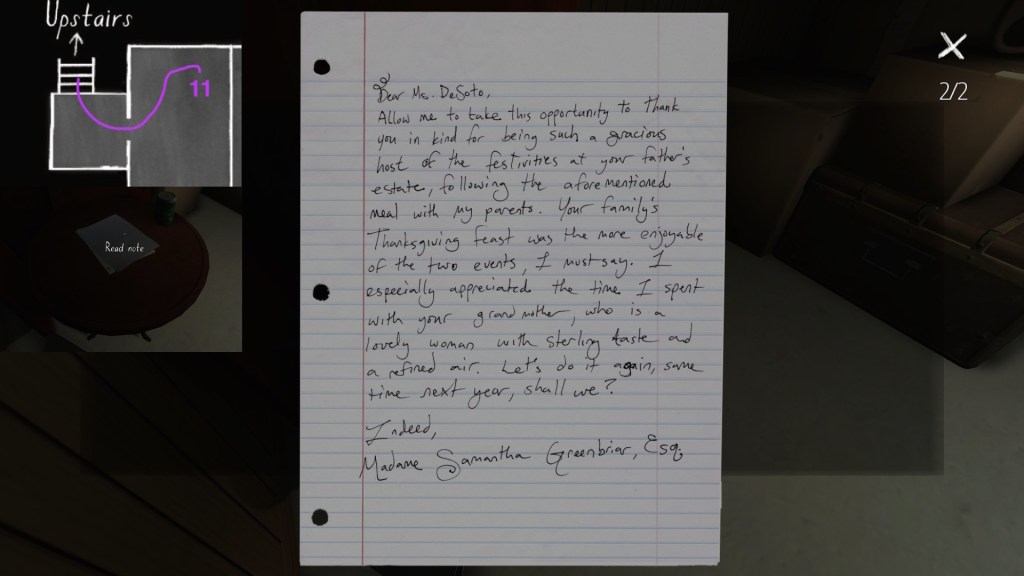 Upstairs
11
Read note
2/2
Dear Ms. DeSoto,
Allow me to take this opportunity to thank
you in kind for being such a gracious
host of the festivities at your father's
estate, following the aforementioned
meal with my parents. Your family's
Thanksgiving feast was the more enjoyable
of the two events, I must say. I
especially appreciated the time I spent
with your grandmother, who is a
lovely woman with sterling taste and
a refined air. Let's do it again, same
time next year, shall we?
Indeed,
Madame Samantha Greenbriar, Esq.